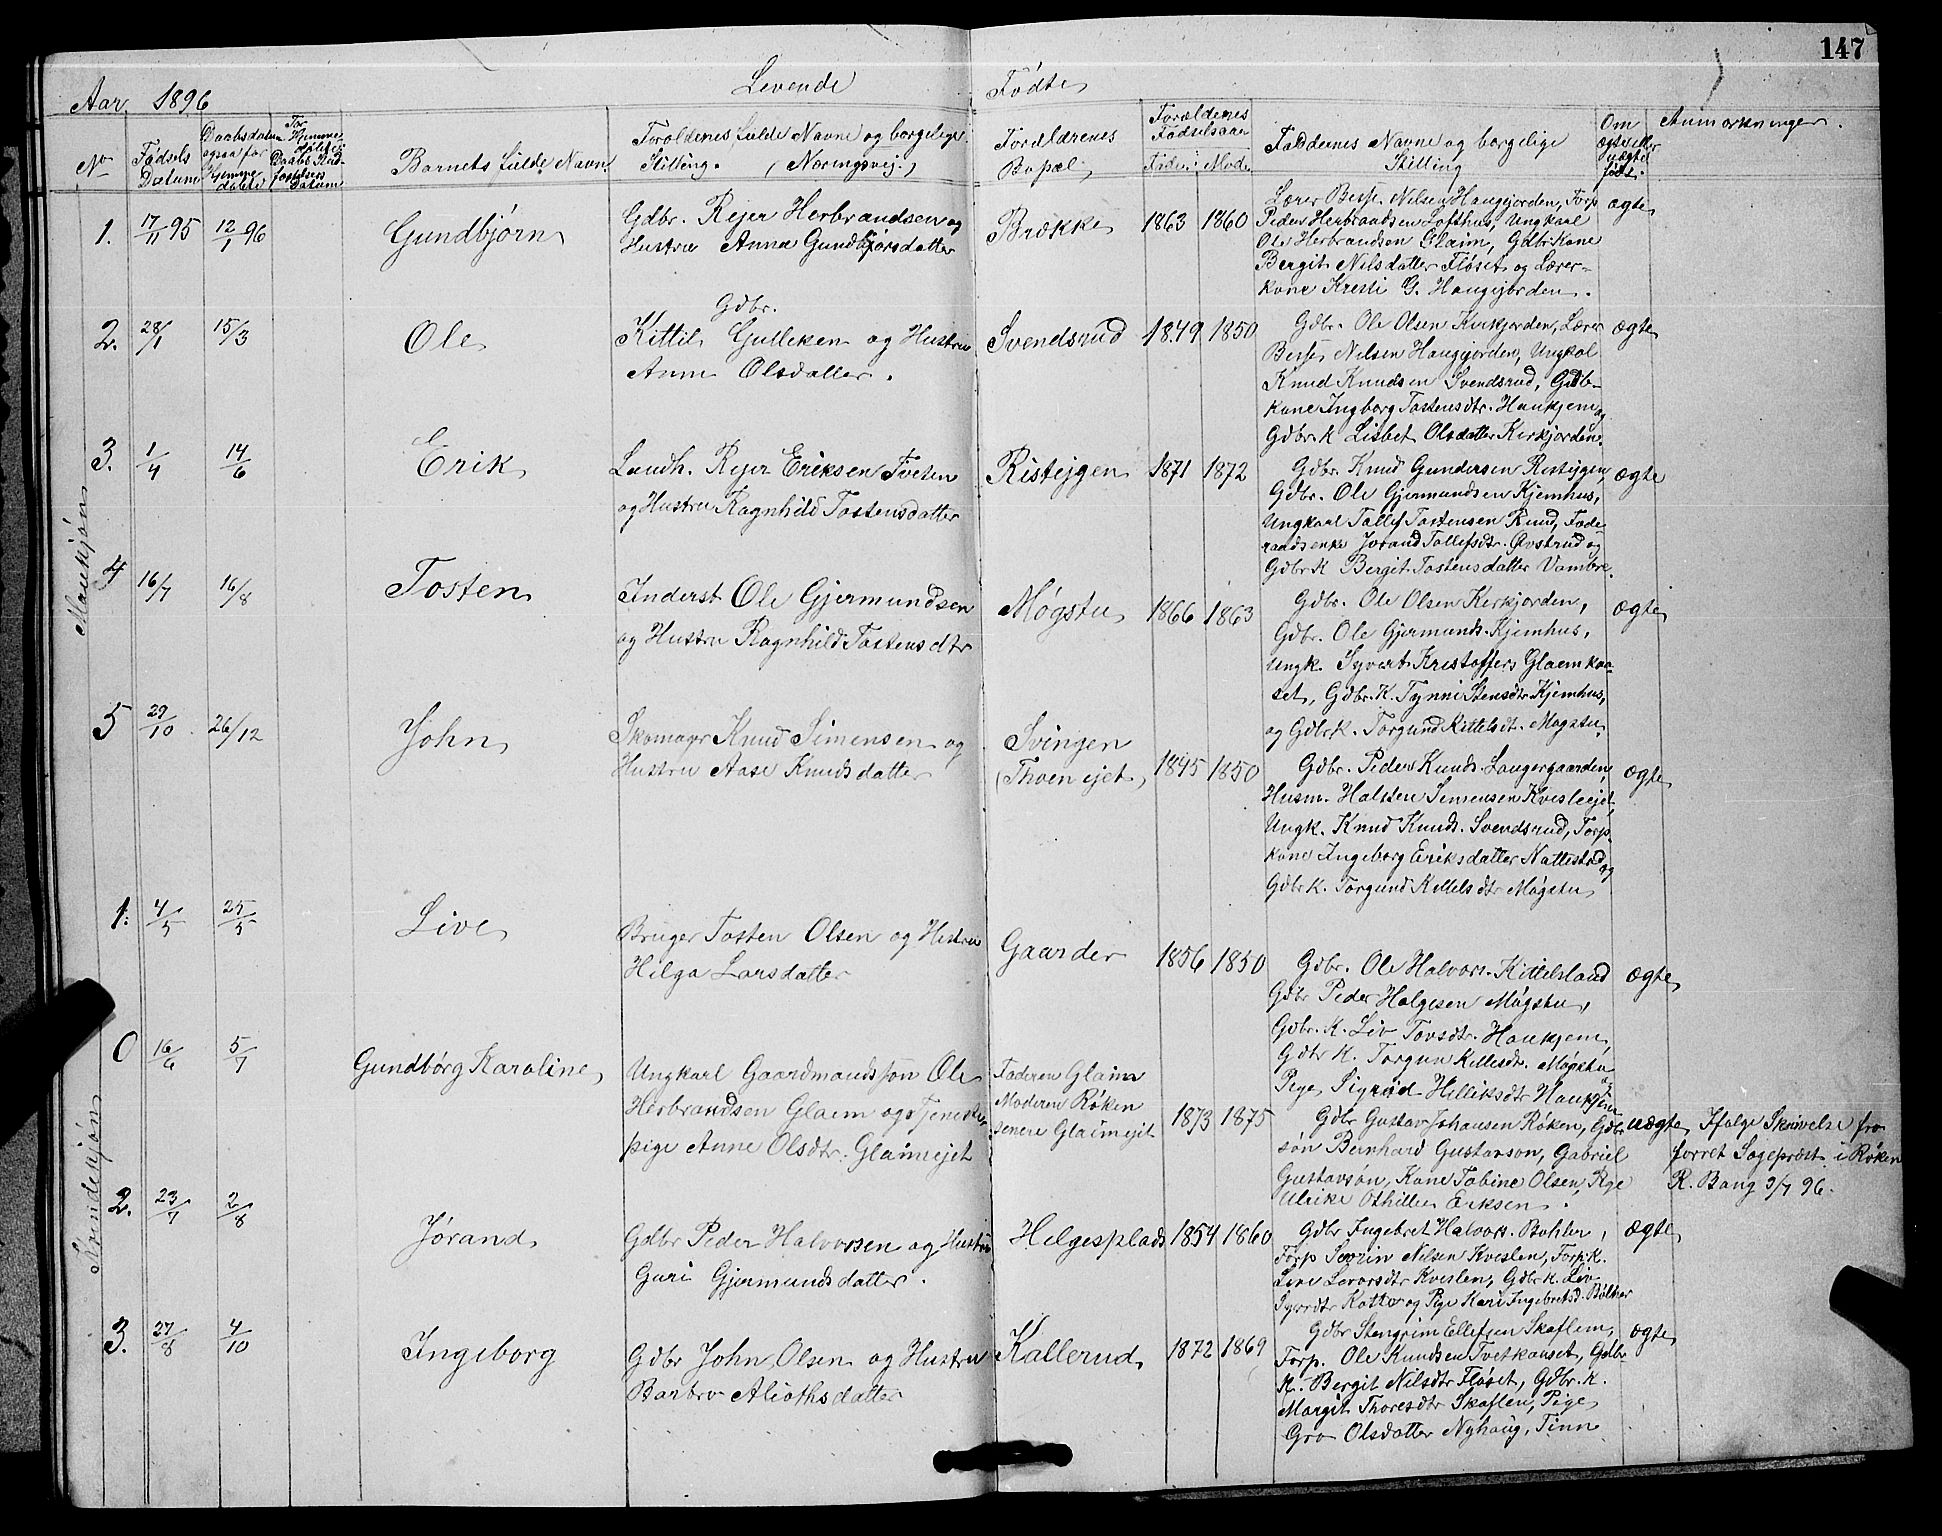 147
Aar 1896
Levende Fødte
No
Fødsels Datum
Daabsdatum ogsaa for Hjemme døbte
For Hjemmedøbte Daabs Stadfæstelses Datum
Barnets fulde Navn
Foroldenes fulde Navne og borgelige Stilling. (Næringsvej.)
Forældrenes Bopæl
Forældenes Fødselsaar
Fader. Moder
Faddernes Navne og borgelige Stilling
Om ægte eller uægte født.
Anmærkninger.
Mankjøn
1. 17/11 95 12/1 96 Gundbjørn
Gdbr. Rejer Herbrandsen og
Hustru Anne Gundbjørsdatter
Brække 1863 1860
Lærer Besse Nilsen Haugjorden, Torp
Peder Herbrandsen Lofthus, Ungkarl
Ole Herbrandsen Glaim, Gdbr Kone
Bergit Nilsdatter Fløset og Lærer-
kone Kresti G. Haugjorden.
ægte
2. 28/1 15/3 Ole
Gdbr.
Kittil Gulleksen og Hustru
Anne Olsdatter.
Svendsrud 1849 1850
Gdbr. Ole Olsen Kirkjorden, Lærer
Besse Nilsen Haugjorden, Ungkal
Knud Knudsen Svendsrud, Gdb-
kone Ingborg Tostensdtr. Haukjem og
Gdbr. K Lisbet Olsdatter Kirkjorden.
ægte
3. 1/4 14/6 Erik
Landh. Rejer Eriksen Tveten
og Hustru Ragnhild Tostensdatter
Ristejgen 1871 1872
Gdbr. Knud Gundersen Ristejgen,
Gdbr. Ole Gjermundsen Kjemhus,
Ungkarl Tollef Tostensen Ruud, Føde-
raadsenke Jorand Tollefsdtr. Øvstrud og
Gdbr K Bergit Tostensdatter Vambre.
ægte
4 16/7 16/8 Tosten
Inderst Ole Gjermundsen
og Hustru Ragnhild Tostensdtr
Møgstu 1866 1863
Gdbr. Ole Olsen Kerkjorden,
Gdbr. Ole Gjermunds. Kjemhus,
Ungk. Syvert Kristoffers Glaemkaa-
set, Gdbr. K. Tynni Stensdtr Kjemhus,
og Gdbr K. Torgund Kittelsdt. Møgstu.
ægte
5 29/10 26/12 John
Skomager Knud Simensen og
Hustru Aase Knudsdatter
Svingen
(Thoen ejet) 1845 1850
Gdbr. Peder Knuds. Langergaarden,
Husm. Halsten Simensen Kvisleejet,
Ungk. Knud Knuds. Svendsrud, Torp.
kone Ingeborg Eriksdatter Nattestad og
Gdbr K. Torgund Kittelsdtr Møgstu
ægte
Kvindekjøn
1. 4/5 25/5 Live
Bruger Tosten Olsen og Hustru
Helga Larsdatter
Gaarder 1856 1850
Gdbr. Ole Halvors. Kittelsland
Gdbr Peder Helgesen Møgstu,
Gdbr. K. Liv Tovsdtr. Haukjem,
Gdbr K. Torgun Kittelsdtr. Møgstu og
Pige Sigrid Helliksdtr Haukjem
ægte
0 16/6 5/7 Gundbørg Karoline
Ungkarl Gaardmandssøn Ole
Herbrandsen Glaim og Tjeneste-
pige Anne Olsdtr. Glaimejet
Faderen Glaim
Moderen Røken
senere Glaimejet 1873 1875
Gdbr Gustav Johansen Røken, Gdbr
søn Bernhard Gustavson, Gabriel
Gustavsøn, Kone Tobine Olsen, Pige
Ulrike Othillie Eriksen.
uægte
Ifølge Skrivelse fra
forret Sogepræst i Røken
R. Bang 3/7 96.
2. 23/7 2/8 Jørand
Gdbr Peder Halvorsen og Hustru
Guri Gjermundsdatter.
Helgesplads 1854 1860
Gdbr Ingebret Halvors. Bøhler,
Torp Søvrin Nilsen Kveslen, Torp. K.
Live Lavorsdtr Kveslen, Gdbr. K. Liv
Syversdtr Katte og Pige Kari Ingebretsd. Bøhler
ægte
3. 27/8 4/10 Ingeborg
Gdbr John Olsen og Hustru
Barbro Aliothsdatter
Kallerud 1872 1869
Gdbr Stengrim Ellefsen Skaflem,
Torp. Ole Knudsen Tvetkaaset, Gdbr-
K. Bergit Nilsdtr Fløset, Gdbr. K.
Margit Thoresdtr Skaflen, Pige
Gro Olsdatter Nyhaug, Tinn
ægte